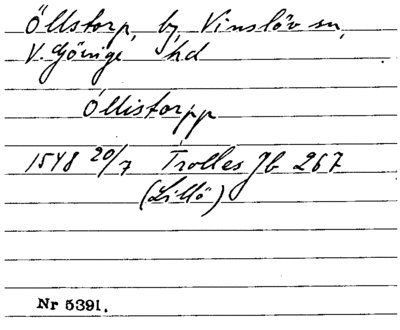 Öllstorp, by, Vinslöv sn,
V. Göinge hd
Óllistorpp
1548 20/7 Trolles Jb 267
(Lillö)
Nr 5391.